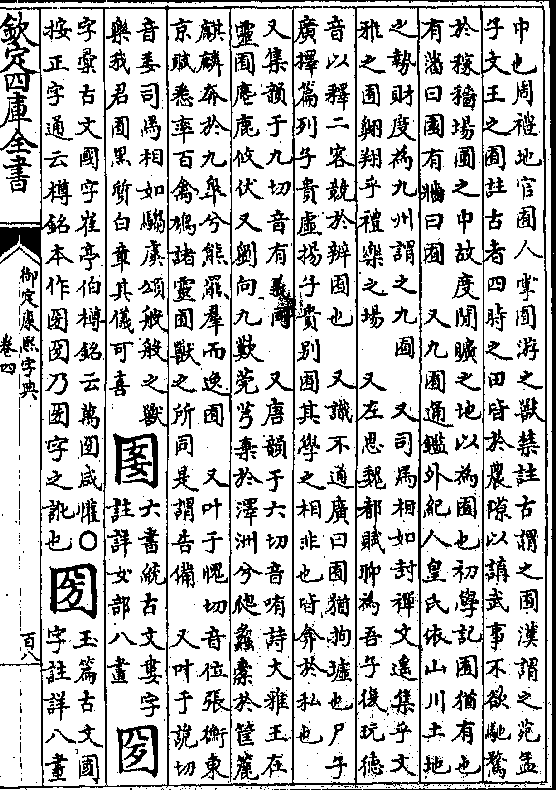 中也周禮地官囿人掌囿游之獸禁註古謂之囿漢謂之苑孟
子文王之囿註古者四時之田皆於農隙以講武事不欲馳騖
於稼穡場圃之中故度閒曠之地以為囿也初學記囿猶有也
有藩曰園有牆曰囿　又九囿通鑑外紀人皇氏依山川土地
之勢財度為九州謂之九囿　又司馬相如封禪文遙集乎文
雅之囿翺翔乎禮樂之場　又左思魏都賦聊為吾子復玩德
音以釋二客競於辯囿也　又識不通廣曰囿猶拘墟也尸子
廣擇篇列子貴虛揚子貴別囿其學之相非也皆弇於私也
又集韻于九切音有義同　又唐韻于六切音哊詩大雅王在
靈囿麀鹿攸伏又劉向九歎莞芎棄於澤洲兮蠡蠹於筐簏
麒麟奔於九皋兮熊羆羣而逸囿　又叶于愧切音位張衡東
京賦悉率百禽鳩諸靈囿獸之所同是謂告備　又叶于說切
音委司馬相如騶虞頌般般之獸
樂我君囿黑質白章其儀可喜
六書統古文婁字
註詳女部八畫
字彚古文國字崔亭伯樽銘云萬咸懽〇
按正字通云樽銘本作乃字之訛也
玉篇古文國
字註詳八畫
欽定四庫全書
御定康熙字典
卷四
百八